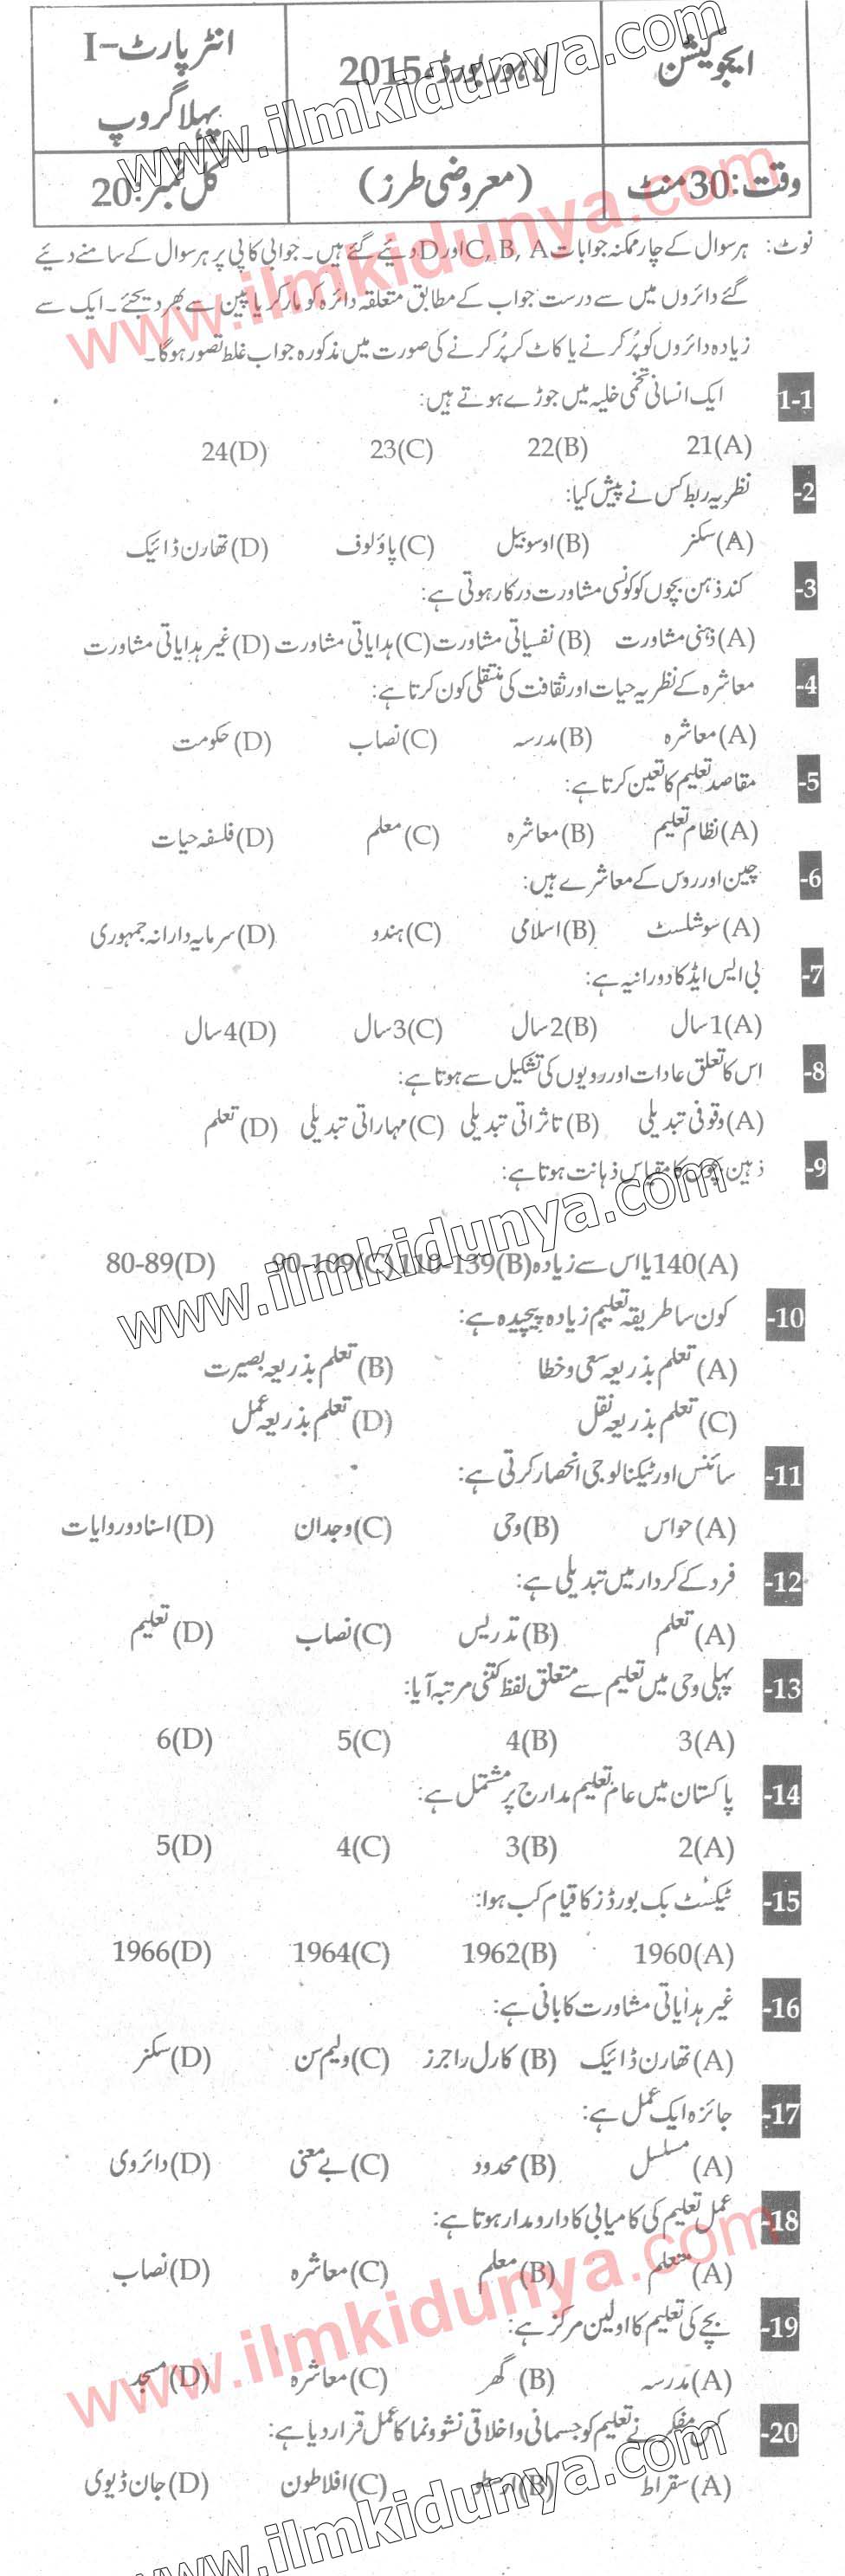 ایجوکیشن لاہور بورڈ، 2015 انٹر پارٹ-I
پہلا گروپ
وقت: 30 منٹ (معروضی طرز) کل نمبر: 20
نوٹ: ہر سوال کے چار ممکنہ جوابات C, B, A اور D دیئے گئے ہیں۔ جوابی کاپی پر ہر سوال کے سامنے دیئے
گئے دائروں میں سے درست جواب کے مطابق متعلقہ دائرہ کو مارکر یا پین سے بھر دیجئے۔ ایک سے
زیادہ دائروں کو پُر کرنے یا کاٹ کر پُر کرنے کی صورت میں مذکورہ جواب غلط تصور ہوگا۔
1-1 ایک انسانی تخمی خلیہ میں جوڑے ہوتے ہیں:
(A) 21 (B) 22 (C) 23 (D) 24
-2 نظریہ ربط کس نے پیش کیا:
(A) سکنر (B) اوسوبیل (C) پاؤلوف (D) تھارن ڈائیک
-3 کند ذہن بچوں کو کونسی مشاورت درکار ہوتی ہے:
(A) ذہنی مشاورت (B) نفسیاتی مشاورت (C) ہدایاتی مشاورت (D) غیر ہدایاتی مشاورت
-4 معاشرہ کے نظریہ حیات اور ثقافت کی منتقلی کون کرتا ہے:
(A) معاشرہ (B) مدرسہ (C) نصاب (D) حکومت
-5 مقاصد تعلیم کا تعین کرتا ہے:
(A) نظام تعلیم (B) معاشرہ (C) معلم (D) فلسفہ حیات
-6 چین اور روس کے معاشرے ہیں:
(A) سوشلسٹ (B) اسلامی (C) ہندو (D) سرمایہ دارانہ جمہوری
-7 بی ایس ایڈ کا دورانیہ ہے:
(A) 1 سال (B) 2 سال (C) 3 سال (D) 4 سال
-8 اس کا تعلق عادات اور رویوں کی تشکیل سے ہوتا ہے:
(A) وقوفی تبدیلی (B) تاثراتی تبدیلی (C) مہاراتی تبدیلی (D) تعلم
-9 ذہین بچوں کا مقیاس ذہانت ہوتا ہے:
(A) 140 یا اس سے زیادہ (B) 110-139 (C) 90-109 (D) 80-89
-10 کون سا طریقہ تعلیم زیادہ پیچیدہ ہے:
(A) تعلم بذریعہ سعی و خطا (B) تعلم بذریعہ بصیرت
(C) تعلم بذریعہ نقل (D) تعلم بذریعہ عمل
-11 سائنس اور ٹیکنالوجی انحصار کرتی ہے:
(A) حواس (B) وحی (C) وجدان (D) اسناد و روایات
-12 فرد کے کردار میں تبدیلی ہے:
(A) تعلم (B) تدریس (C) نصاب (D) تعلیم
-13 پہلی وحی میں تعلیم سے متعلق لفظ کتنی مرتبہ آیا:
(A) 3 (B) 4 (C) 5 (D) 6
-14 پاکستان میں عام تعلیم مدارج پر مشتمل ہے:
(A) 2 (B) 3 (C) 4 (D) 5
-15 ٹیکسٹ بک بورڈز کا قیام کب ہوا:
(A) 1960 (B) 1962 (C) 1964 (D) 1966
-16 غیر ہدایاتی مشاورت کا بانی ہے:
(A) تھارن ڈائیک (B) کارل راجرز (C) ولیم سن (D) سکنر
-17 جائزہ ایک عمل ہے:
(A) مسلسل (B) محدود (C) بے معنی (D) دائروی
-18 عمل تعلیم کی کامیابی کا دارومدار ہوتا ہے:
(A) متعلم (B) معلم (C) معاشرہ (D) نصاب
-19 بچے کی تعلیم کا اولین مرکز ہے:
(A) مدرسہ (B) گھر (C) معاشرہ (D) مسجد
-20 کس مفکر نے تعلیم کو جسمانی و اخلاقی نشوونما کا عمل قرار دیا ہے:
(A) سقراط (B) ارسطو (C) افلاطون (D) جان ڈیوی
www.ilmkidunya.com
www.ilmkidunya.com
www.ilmkidunya.com
www.ilmkidunya.com
www.ilmkidunya.com